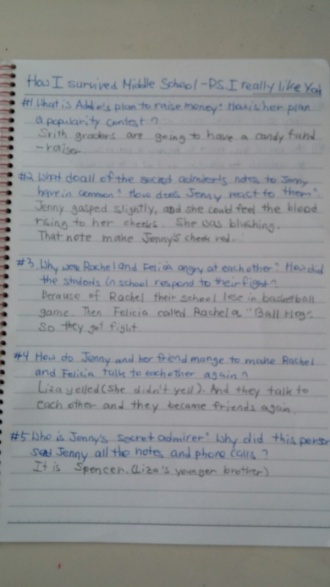 How I survived Middle School - P.S. I really like You
#1 What is Addie's plan to raise money? How is her plan
a popularity contest?
Sixth graders are going to have a candy fund
-raiser.
#2 What do all of the secret admirer's notes to Jenny
have in common? How does Jenny react to them?
Jenny gasped slightly, and she could feel the blood
rising to her cheeks. She was blushing.
That note make Jenny's cheek red.
#3. Why were Rachel and Felicia angry at each other? How did
the students in school respond to their fight?
Because of Rachel their school lose in basketball
game. Then Felicia called Rachel a "Ball Hog".
So they got fight.
#4 How do Jenny and her friend mange to make Rachel
and Felicia talk to each other again?
Liza yelled (She didn't yell). And they talk to
each other and they become friends again.
#5 Who is Jenny's secret admirer? Why did this person
Jenny all the notes and phone calls?
It is Spencer. (Liza's younger brother)